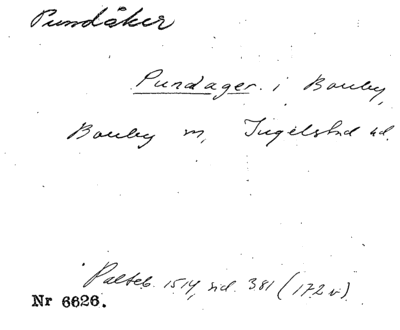 Pundåker
Pundager i Bouby,
Bouby m, Ingelstad hd.
Palteb. 1514, sid. 381 (172 v)
Nr 6626.